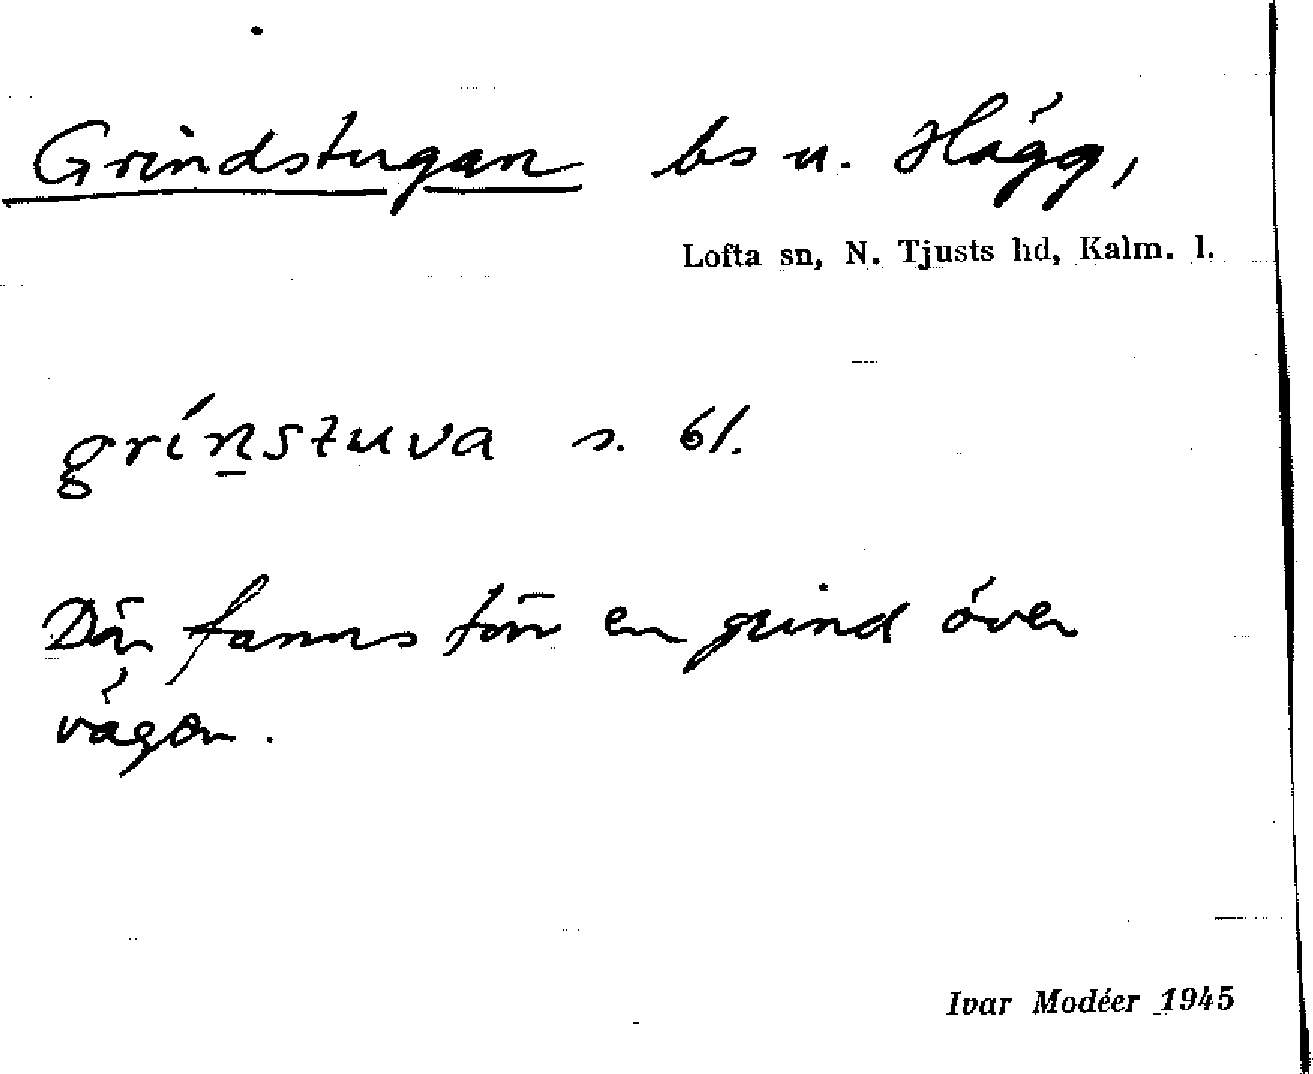 Grindstugan bs u. Hägg,
Lofta sn, N. Tjusts hd, Kalm. l.
grín̲stuva s. 61.
Där fanns förr en grind över
vägen.
Ivar Modéer 1945